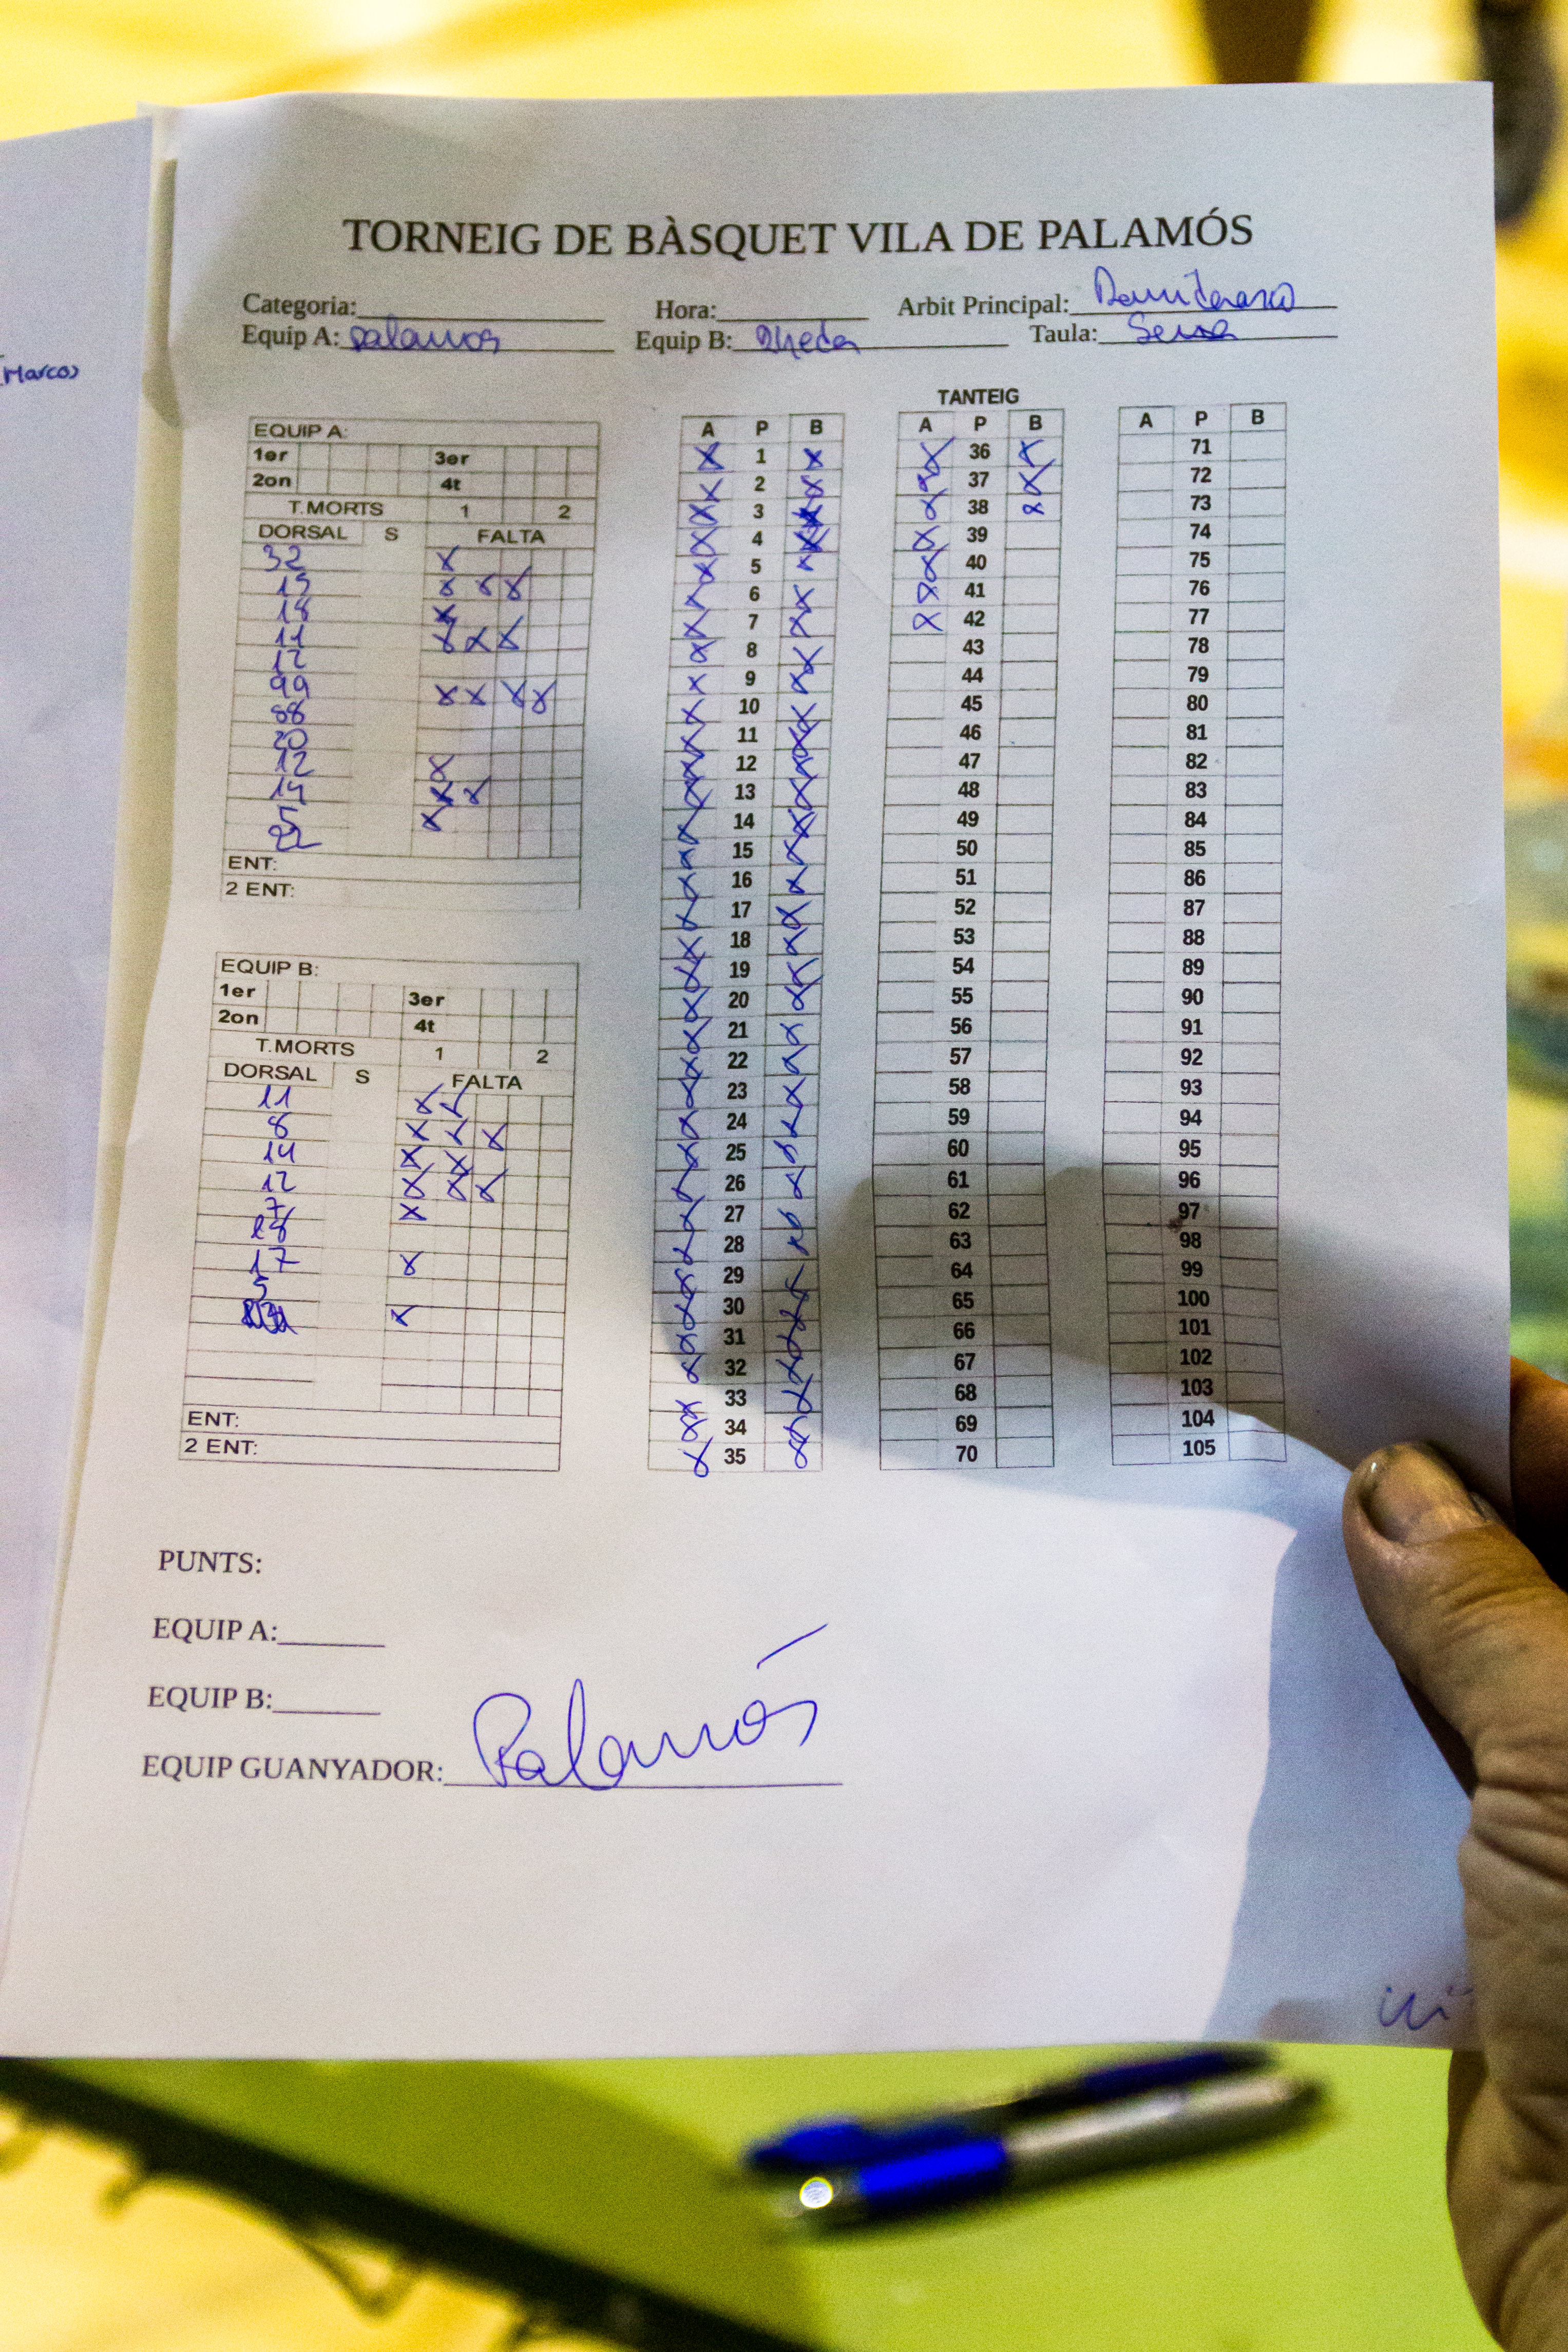 (Marcos)
TORNEIG DE BÀSQUET VILA DE PALAMÓS
Categoria: Hora: Arbit Principal:
Equip A: palamos Equip B: Taula:
TANTEIG
EQUIP A:
1er 3er
2on 4t
T.MORTS 1 2
DORSAL S FALTA
32 X
15 X X X
18 X
11 X X X
12
99 X X X X
88
20
12 X
14 X X
5 X
22
ENT:
2 ENT:
EQUIP B:
1er 3er
2on 4t
T.MORTS 1 2
DORSAL S FALTA
11 X X
8 X X X
14 X X
12 X X X
7 X
18
17 X
5
X
ENT:
2 ENT:
A P B
X 1 X
X 2 X
X 3 X
X 4 X
X 5 X
X 6 X
X 7 X
X 8 X
X 9 X
X 10 X
X 11 X
X 12 X
X 13 X
X 14 X
X 15 X
X 16 X
X 17 X
X 18 X
X 19 X
X 20 X
X 21 X
X 22 X
X 23 X
X 24 X
X 25 X
X 26 X
X 27 X
X 28 X
X 29 X
X 30 X
X 31 X
X 32 X
X 33 X
X 34 X
X 35 X
A P B
X 36 X
X 37 X
X 38 X
X 39
X 40
X 41
X 42
43
44
45
46
47
48
49
50
51
52
53
54
55
56
57
58
59
60
61
62
63
64
65
66
67
68
69
70
A P B
71
72
73
74
75
76
77
78
79
80
81
82
83
84
85
86
87
88
89
90
91
92
93
94
95
96
97
98
99
100
101
102
103
104
105
PUNTS:
EQUIP A:
EQUIP B:
EQUIP GUANYADOR: Palamós